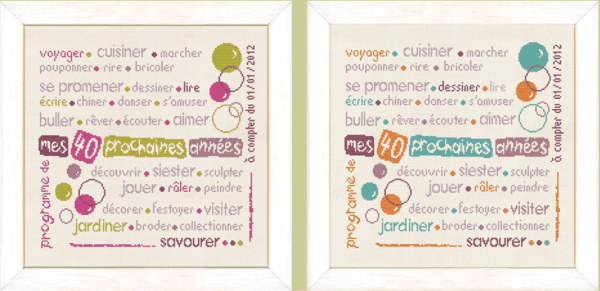 voyager • cuisiner • marcher
pouponner • rire • bricoler
se promener • dessiner • lire
écrire • chiner • danser • s'amuser
buller • rêver • écouter • aimer
mes 40 prochaines années
découvrir • siester • sculpter
jouer • râler • peindre
décorer • festoyer • visiter
jardiner • broder • collectionner
savourer •••
programme de
à compter du 01/01/2012
voyager • cuisiner • marcher
pouponner • rire • bricoler
se promener • dessiner • lire
écrire • chiner • danser • s'amuser
buller • rêver • écouter • aimer
mes 40 prochaines années
découvrir • siester • sculpter
jouer • râler • peindre
décorer • festoyer • visiter
jardiner • broder • collectionner
savourer •••
programme de
à compter du 01/01/2012